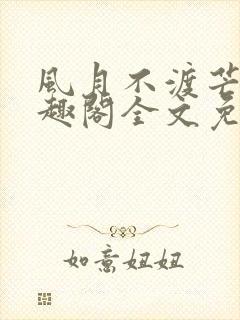 風月不渡芒
趣閣全文免
如意妞妞